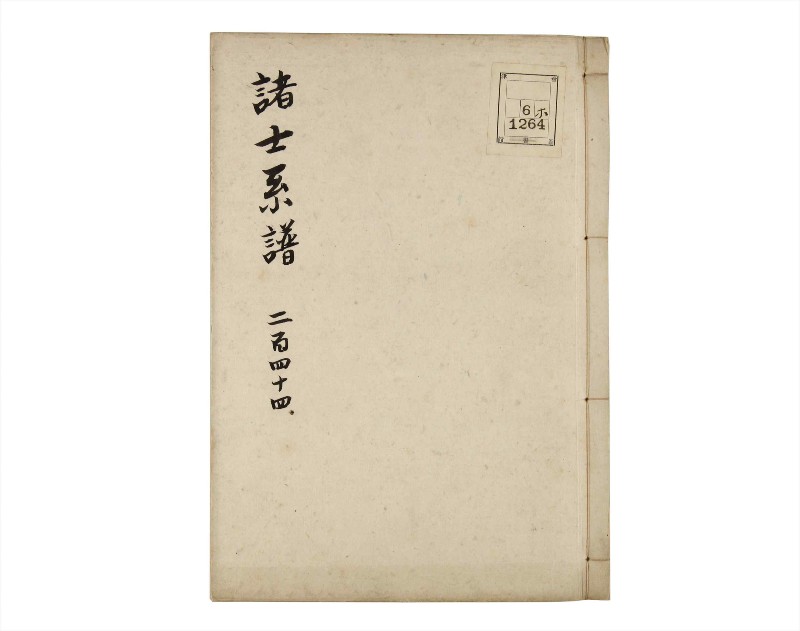 諸士系譜
二百四十四
6ホ
1264